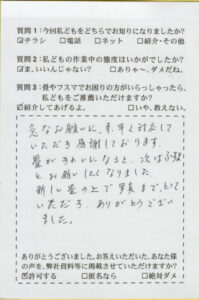 質問1：今回私どもをどちらでお知りになりましたか？
☑チラシ　□電話　□ネット　□紹介・その他
質問2：私どもの作業中の態度はいかがでしたか？
☑ま、いいんじゃない？　□ありゃ～、ダメだね。
質問3：畳やフスマでお困りの方がいらっしゃったら、
私どもをご推薦いただけますか？
☑紹介してあげるよ。　□いや、教えない。
急なお願いに、素早く対応して
いただき感謝しております。
畳がきれいになると、次はふすま
もお願いしたくなりました。
新しい畳の上で写真まで、とって
いただき、ありがとうござい
ました。
ありがとうございました。お答えいただいた、あなた様
の声を、弊社資料等に掲載させていただけますか？
☑許可する　□匿名なら　□絶対ダメ